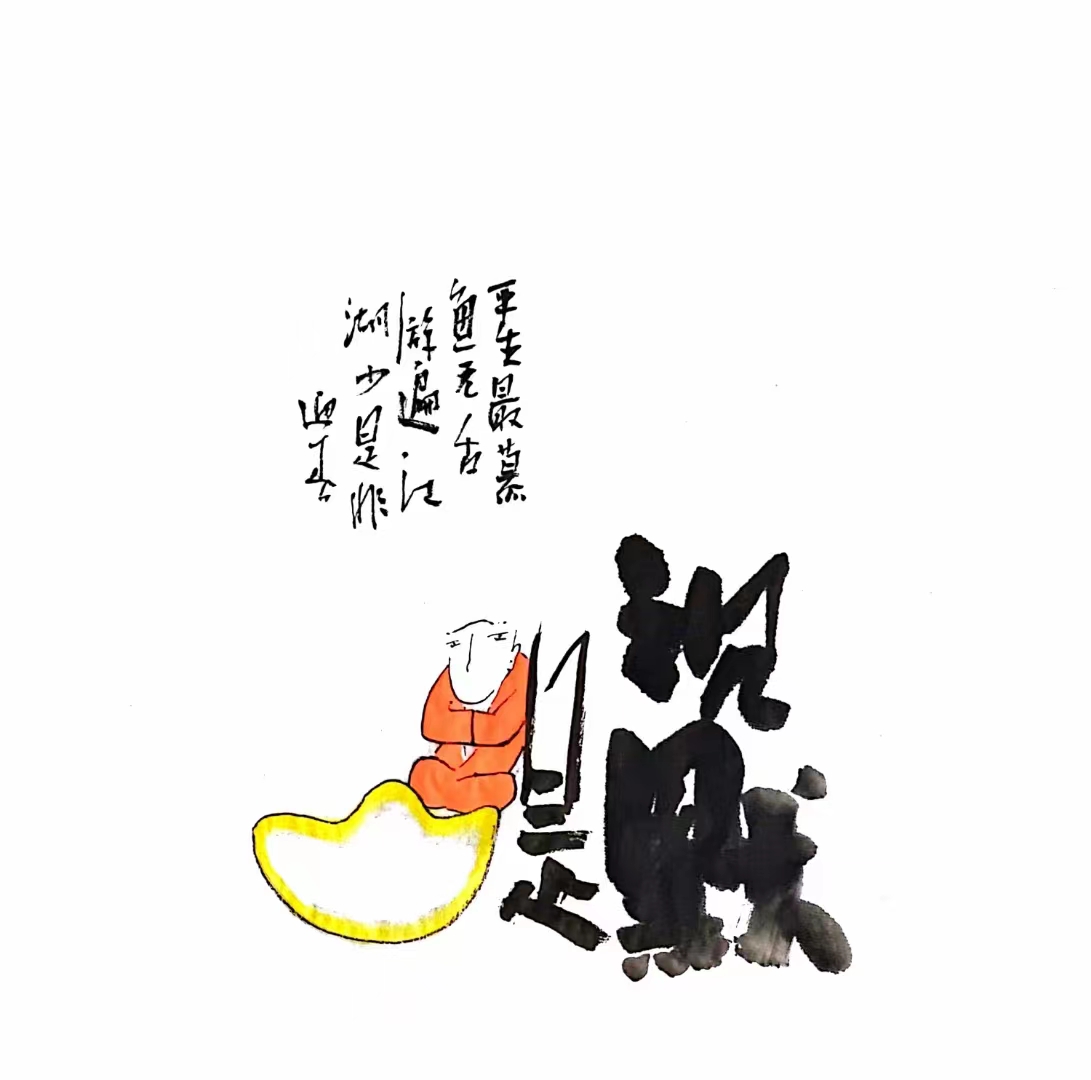 沉默
是
平生最慕
鱼无舌
游遍江
湖少是非